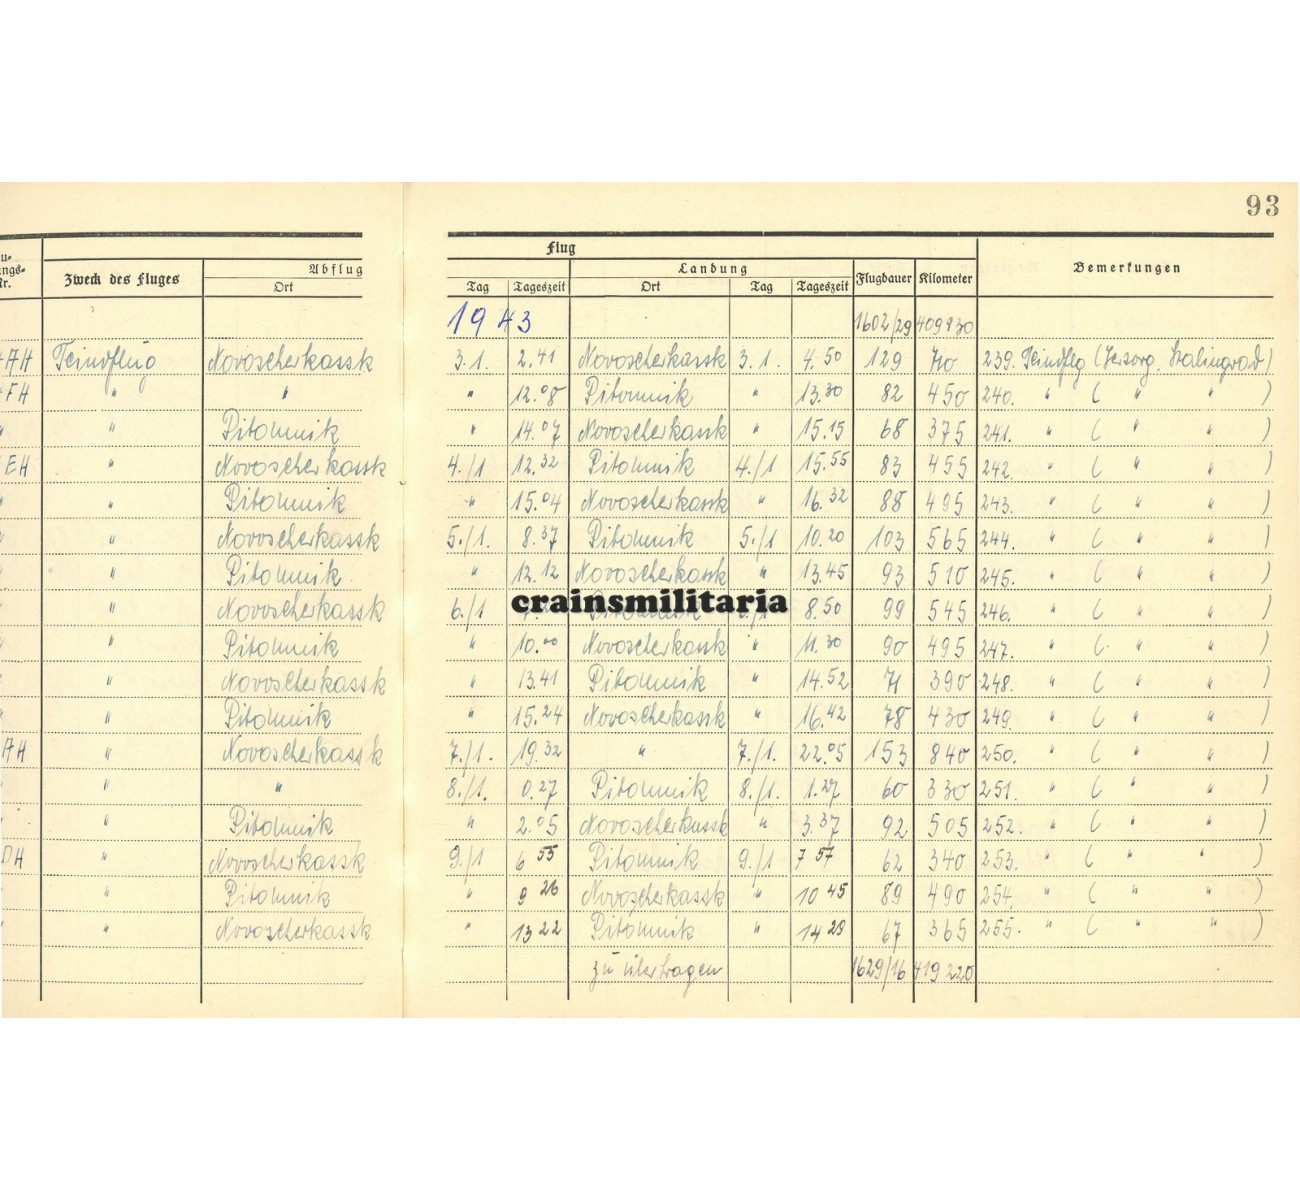 93
Flug
Abflug
Landung
Zweck des Fluges
Ort
Tag
Tageszeit
Ort
Tag
Tageszeit
Flugdauer
Kilometer
Bemerkungen
1943 1602/29 409930
AH Feindflug Novoscherkassk 3.1. 2.41 Novoscherkassk 3.1. 4.50 129 710 239. Feindflg (Versorg. Stalingrad)
FH " " " 12.08 Pitomnik " 13.30 82 450 240. " ( " " )
" " Pitomnik " 14.07 Novoscherkassk " 15.15 68 375 241. " ( " " )
EH " Novoscherkassk 4./1 12.32 Pitomnik 4./1 15.55 83 455 242. " ( " " )
" " Pitomnik " 15.04 Novoscherkassk " 16.32 88 495 243. " ( " " )
" " Novoscherkassk 5./1. 8.37 Pitomnik 5./1 10.20 103 565 244. " ( " " )
" " Pitomnik " 12.12 Novoscherkassk " 13.45 93 510 245. " ( " " )
" " Novoscherkassk 6./1 8.50 99 545 246. " ( " " )
crainsmilitaria
" " Pitomnik " 10.00 Novoscherkassk " 11.30 90 495 247. " ( " " )
" " Novoscherkassk " 13.41 Pitomnik " 14.52 71 390 248. " ( " " )
" " Pitomnik " 15.24 Novoscherkassk " 16.42 78 430 249. " ( " " )
AH " Novoscherkassk 7./1. 19.32 " 7./1. 22.05 153 840 250. " ( " " )
" " " 8./1. 0.27 Pitomnik 8./1. 1.27 60 330 251. " ( " " )
" " Pitomnik " 2.05 Novoscherkassk " 3.37 92 505 252. " ( " " )
DH " Novoscherkassk 9./1 6 55 Pitomnik 9./1 7 57 62 340 253. " ( " " )
" " Pitomnik " 9 26 Novoscherkassk " 10 45 89 490 254. " ( " " )
" " Novoscherkassk " 13 22 Pitomnik " 14 29 67 365 255. " ( " " )
zu übertragen 1629/16 419220